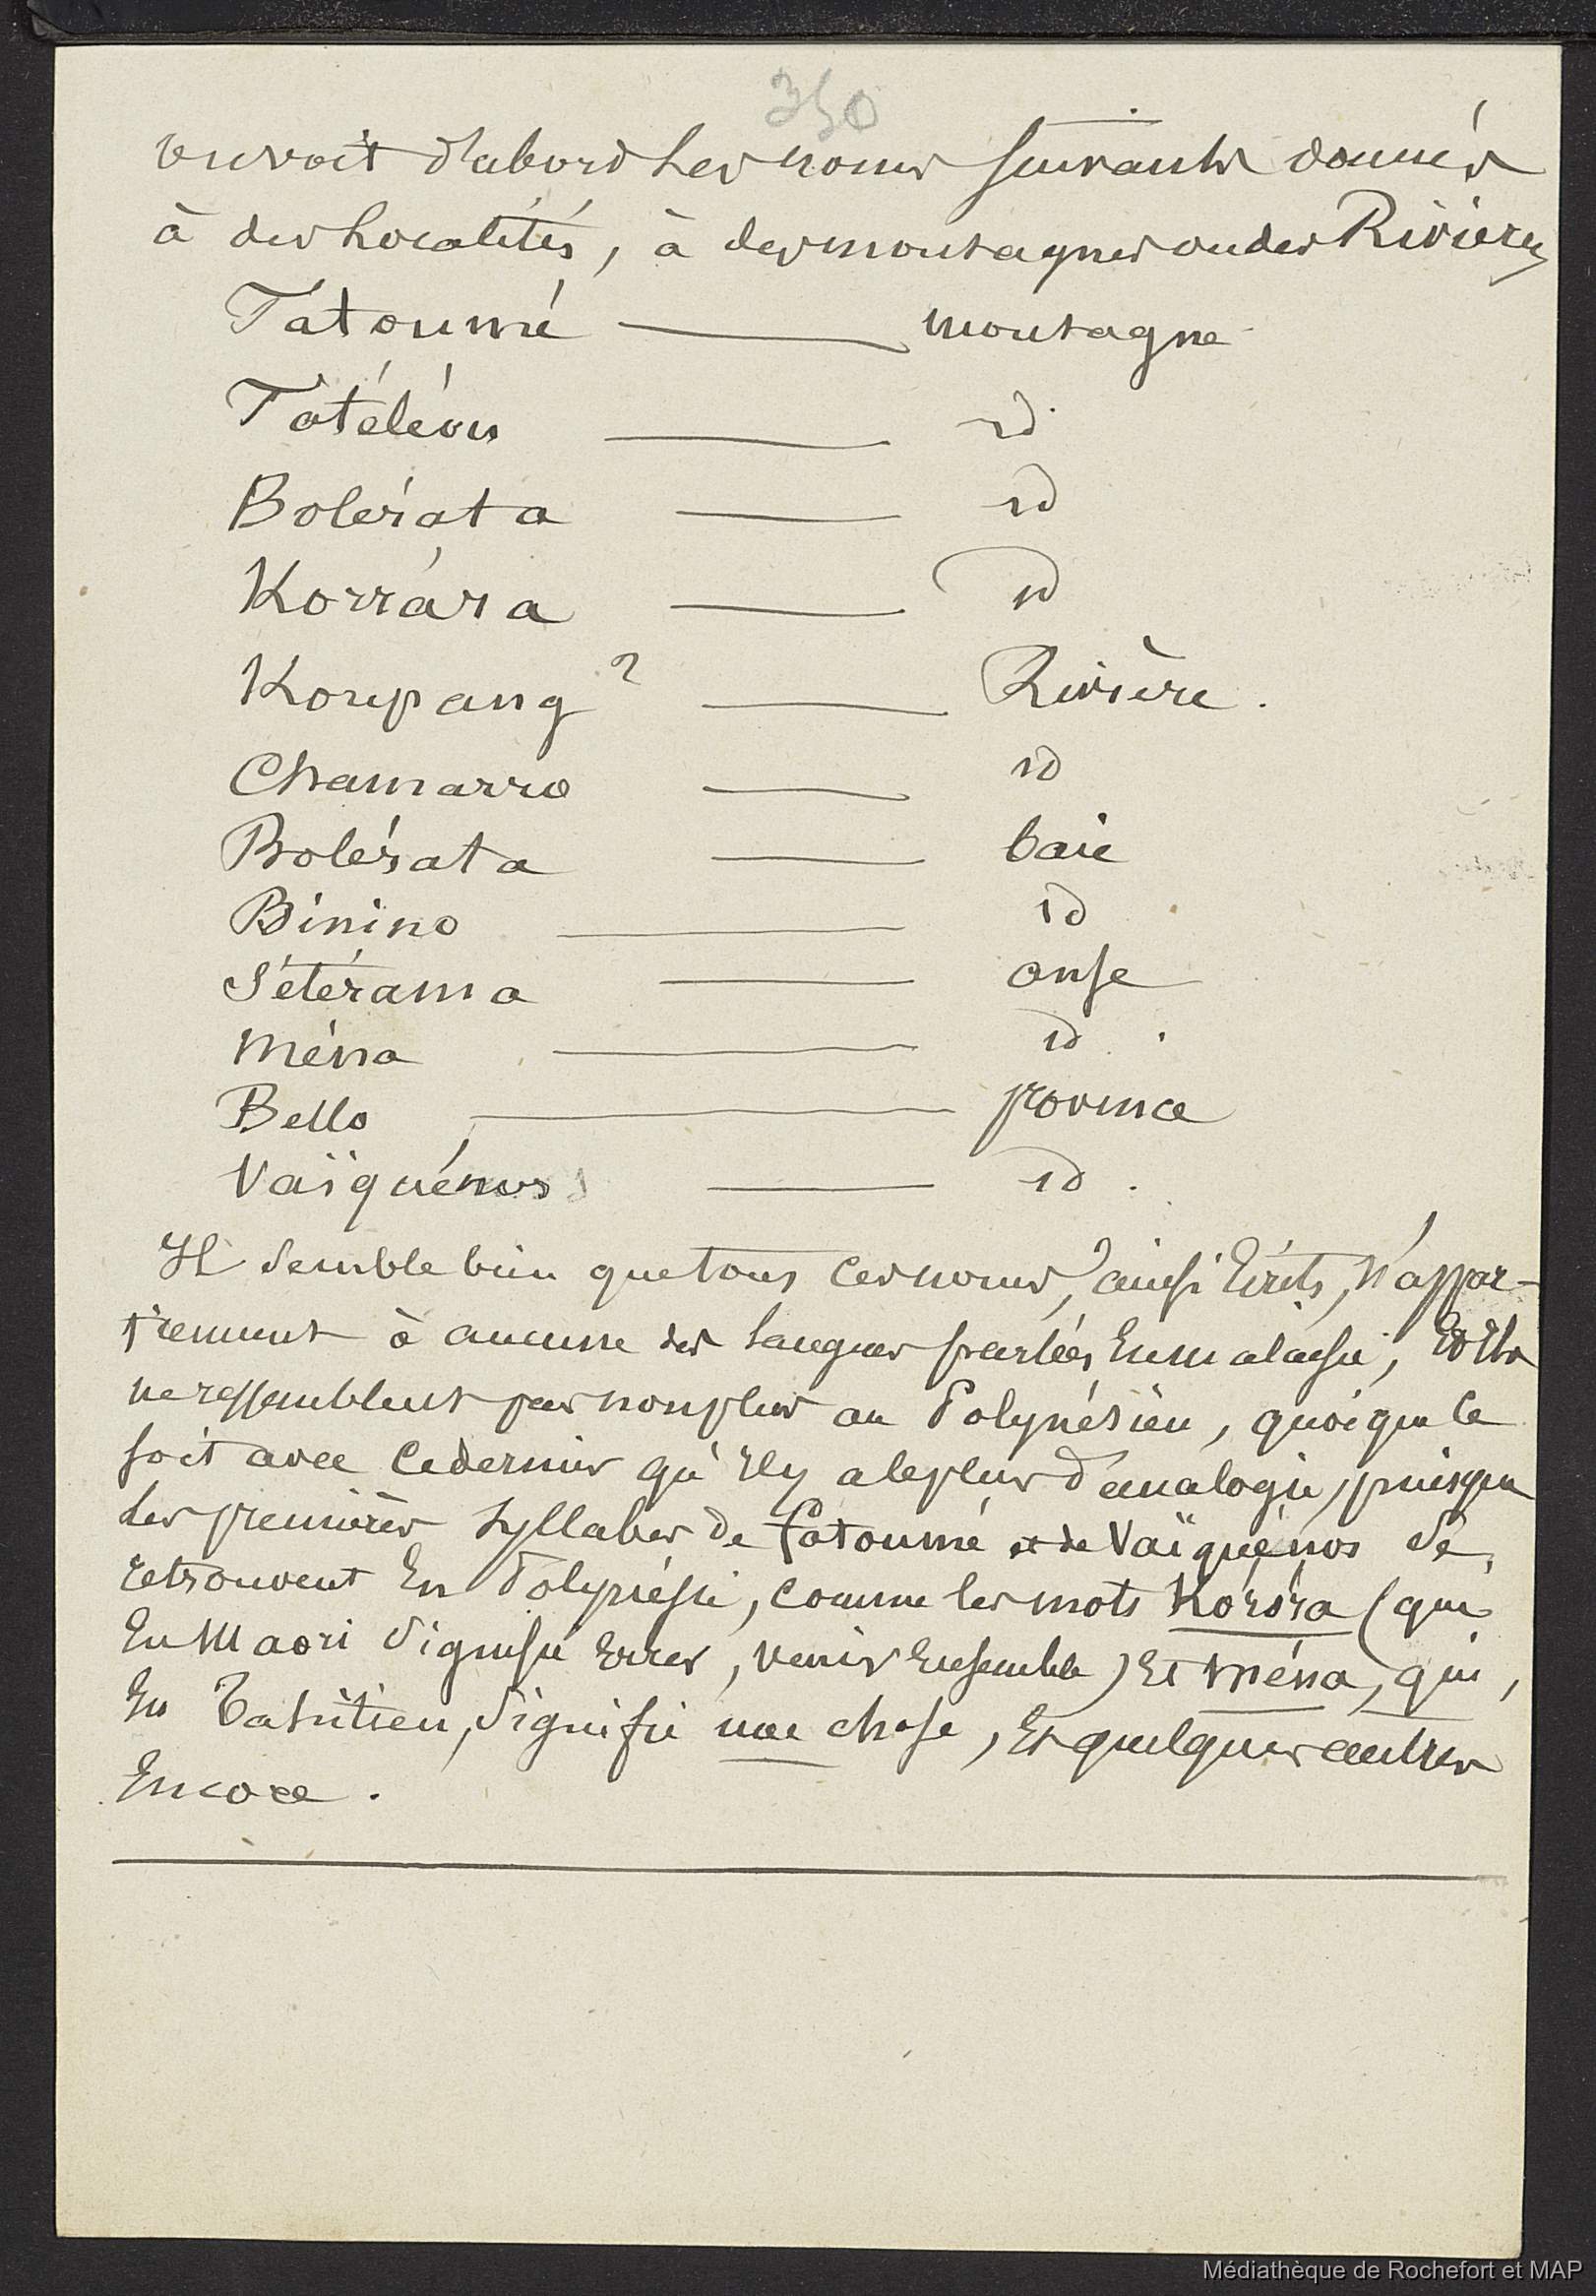 350
on voit d'abord les noms suivants donnés
à des localités, à des montagnes ou des Rivières
Tatoumé — montagne
Tatéléou — id.
Bolérata — id
Korrára — id
Koupang ? — Rivière.
Chamarro — id
Bolérata — baie
Binino — id
Sétérama — anse
Ména — id.
Bello — province
Vaïquénos — id.
Il semble bien que tous ces noms, ainsi Ecrits, n'appar-
tiennent à aucune des langues parlées En malaisie, Et Ils
ne ressemblent pas non plus au Polynésien, quoique ce
soit avec ce dernier qu'Il y a le plus d'analogie, puisque
les premières syllabes de Tatoumé et de Vaïquénos se
retrouvent En Polynésie, comme les mots Korora (qui
En Maori signifie Errer, venir Ensemble) Et ména, qui,
En Tahitien, signifie une chose, Et quelques autres
Encore.
Médiathèque de Rochefort et MAP